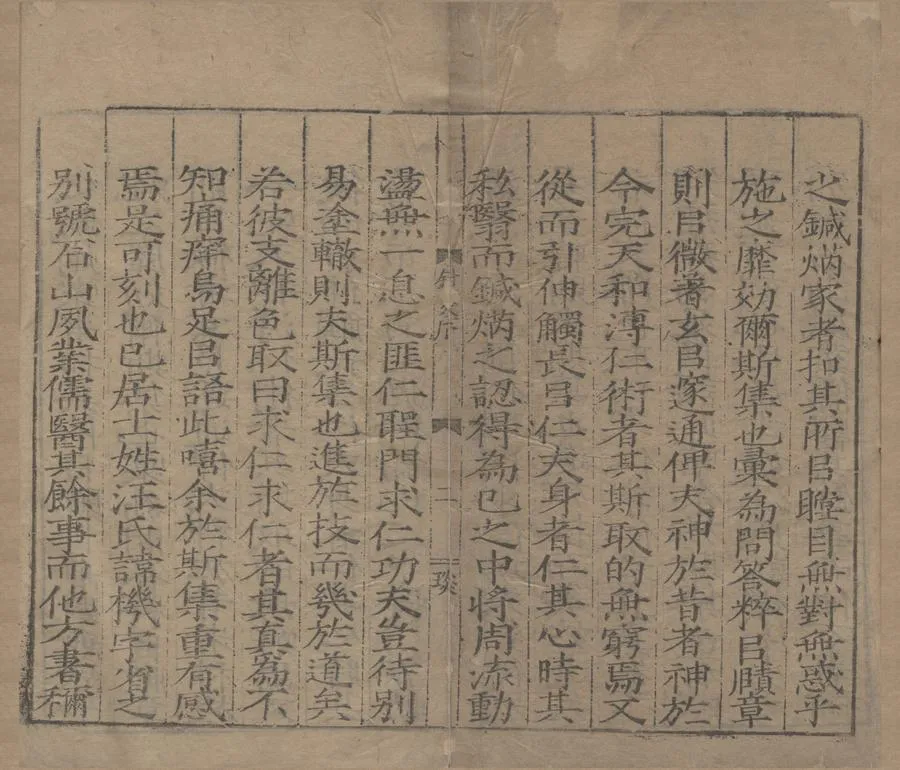 之鍼焫家者扣其所㠯瞠目無對無惑乎
施之靡効爾斯集也彙為問答粹㠯賾章
則㠯微著玄㠯邃通俾夫神於昔者神於
今完天和溥仁術者其斯取的無窮焉又
從而引伸觸長㠯仁夫身者仁其心時其
私翳而鍼焫之認得為己之中將周流動
盪無一息之匪仁聖門求仁功夫豈待別
易塗轍則夫斯集也進於技而幾於道矣
若彼支離色取曰求仁求仁者其真為不
知痛痒烏足㠯語此嘻余於斯集重有感
焉是可刻也已居士姓汪氏諱機字省之
別號石山夙業儒醫其餘事而他方書稱
針 序
二